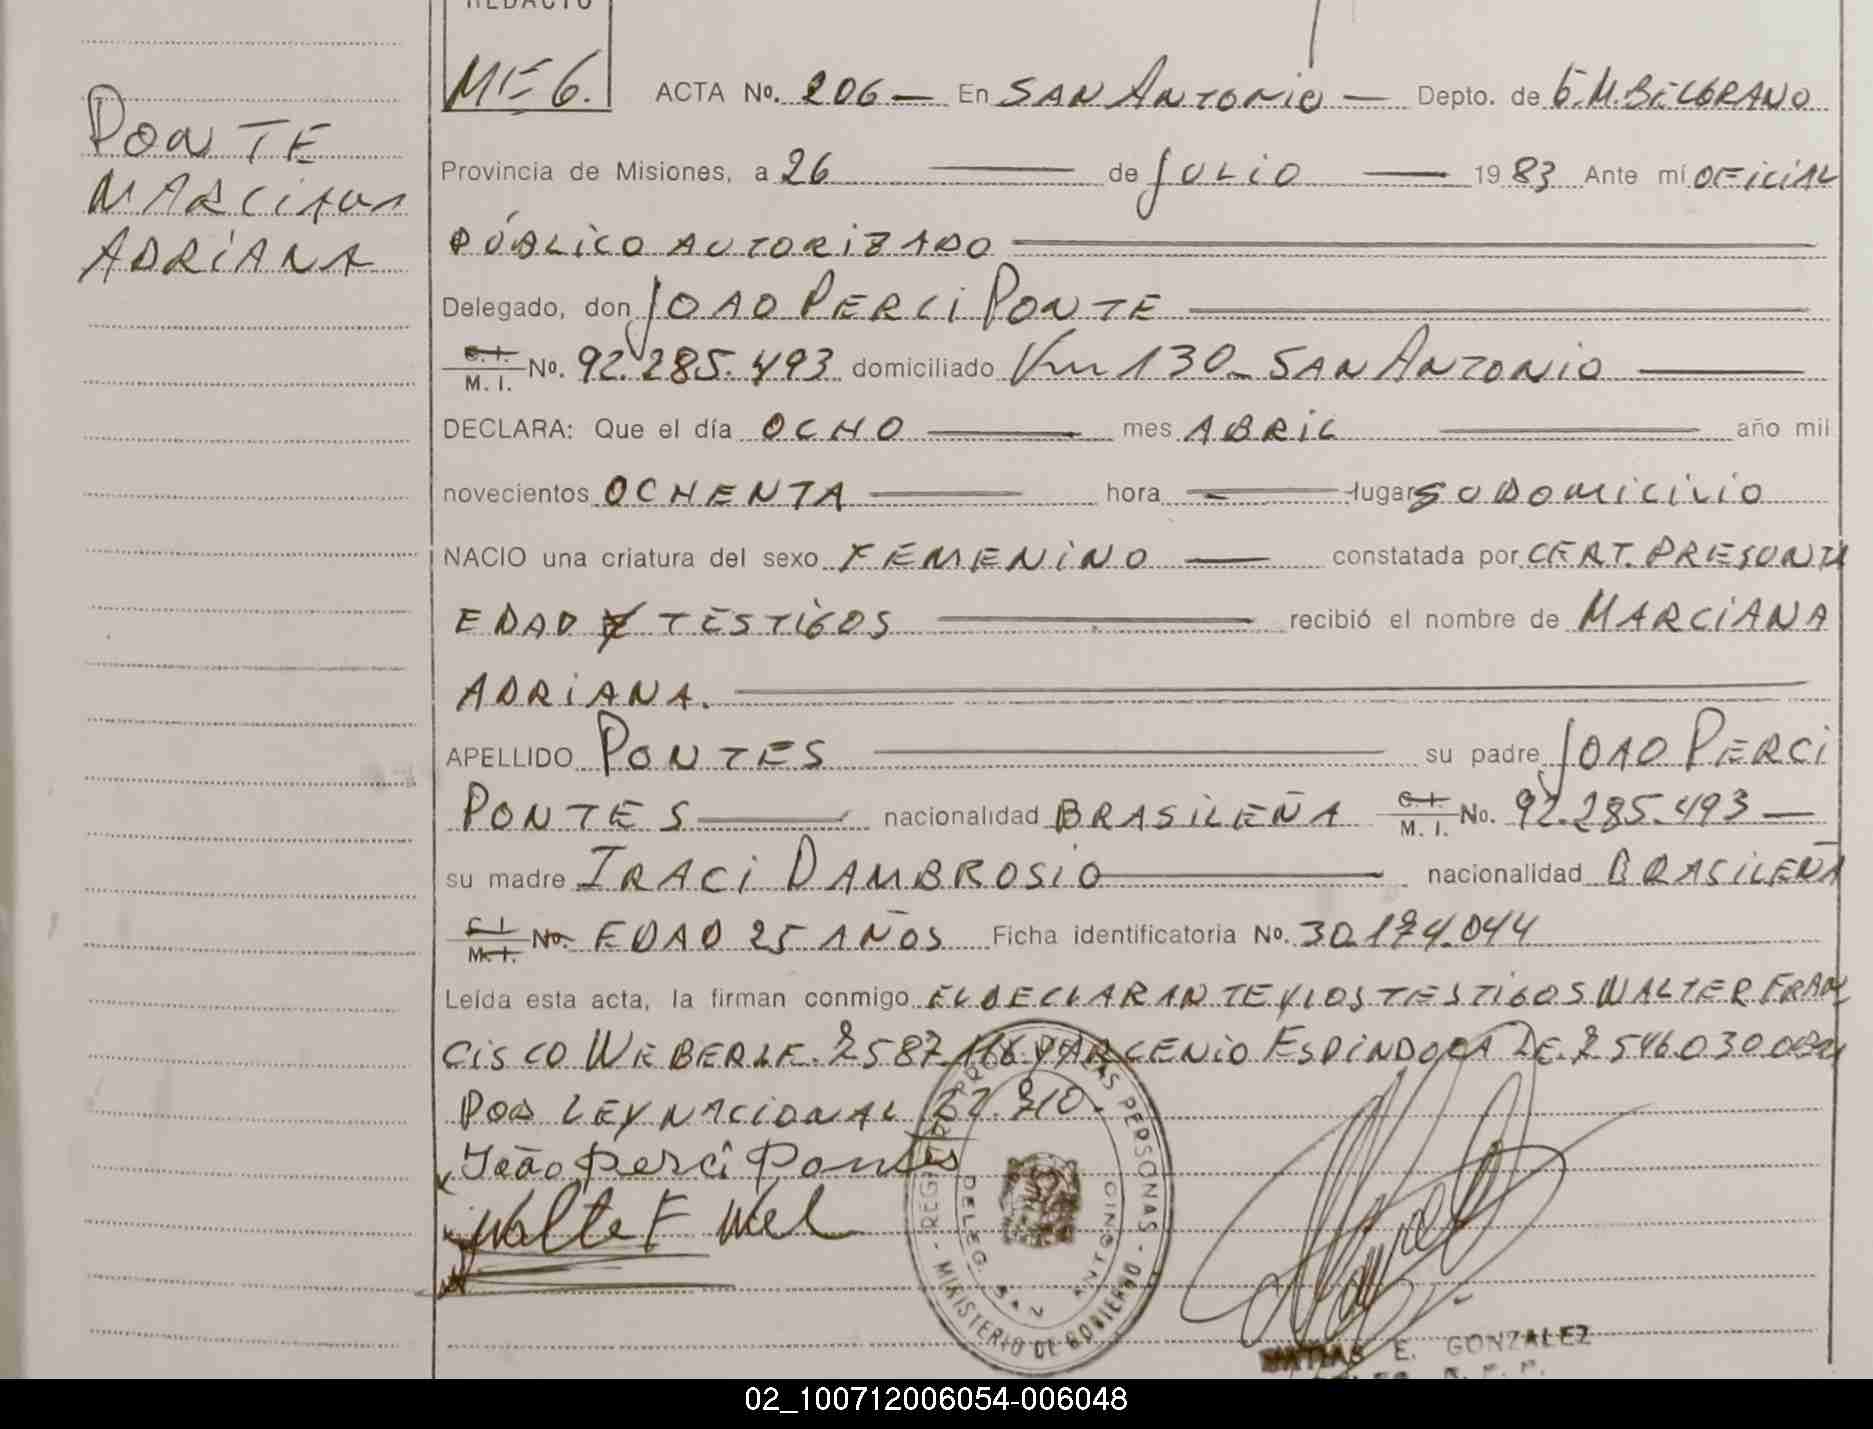 REDACTO
ME 6.
PONTE
MARCIANA
ADRIANA
ACTA No. 206 — En SAN ANTONIO — Depto. de G.M. BELGRANO
Provincia de Misiones, a 26 — de JULIO — 1983 Ante mí OFICIAL
PÚBLICO AUTORIZADO
Delegado, don JOAO PERCI PONTE
C.I. M. I. No. 92.285.493 domiciliado Km 130 - SAN ANTONIO
DECLARA: Que el día OCHO — mes ABRIL — año mil
novecientos OCHENTA — hora — lugar SU DOMICILIO
NACIO una criatura del sexo FEMENINO — constatada por CERT. PRESUNTA
EDAD Y TESTIGOS — recibió el nombre de MARCIANA
ADRIANA.
APELLIDO PONTES — su padre JOAO PERCI
PONTES — nacionalidad BRASILEÑA C.I. M. I. No. 92.285.493 —
su madre IRACI DAMBROSIO — nacionalidad BRASILEÑA
C.I. M.I. No. EDAD 25 AÑOS Ficha identificatoria No. 30.174.044
Leída esta acta, la firman conmigo EL DECLARANTE Y LOS TESTIGOS WALTER FRAN
CISCO WEBERLE. 2587.116 Y ARCENIO ESPINDOLA DE. 2546.030
POR LEY NACIONAL
João Perci Pontes
Walte F Wel
REGISTRO PROV. DE LAS PERSONAS - MINISTERIO DE GOBIERNO
DELEG. SAN ANTONIO
MATIAS E. GONZALEZ
02_100712006054-006048